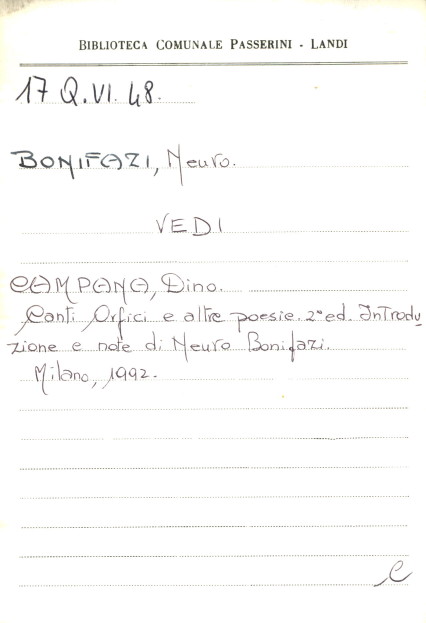 BIBLIOTECA COMUNALE PASSERINI - LANDI
17 Q.VI.48.
BONIFAZI, Neuro.
VEDI
CAMPANA, Dino.
Canti Orfici e altre poesie. 2ª ed. Introdu
zione e note di Neuro Bonifazi.
Milano, 1992.
C